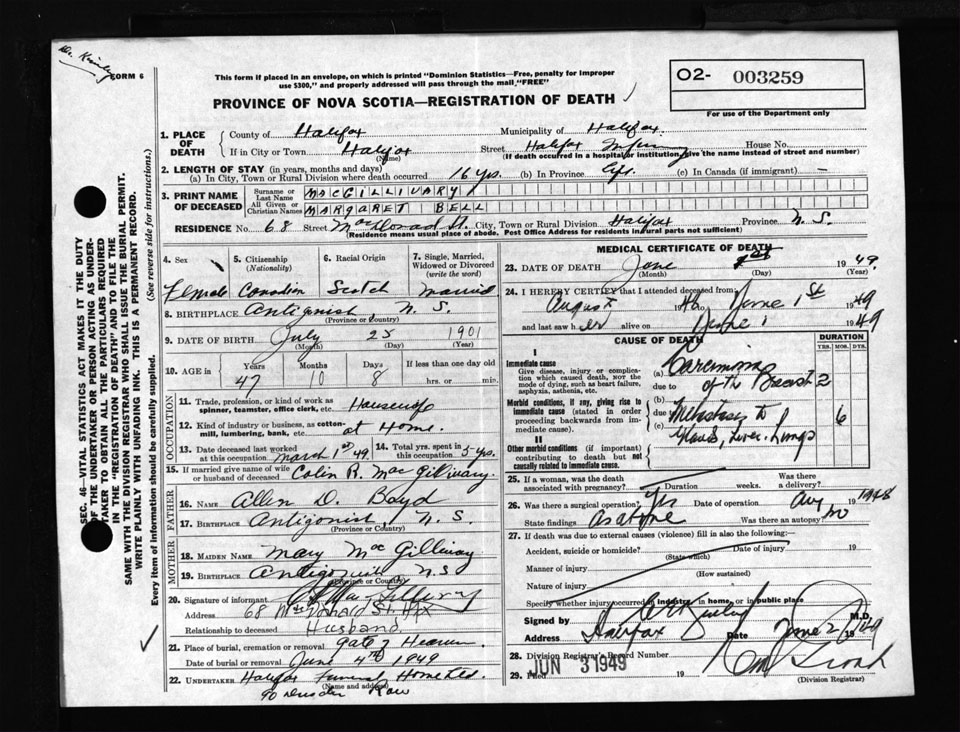 FORM 6
This form if placed in an envelope, on which is printed "Dominion Statistics—Free, penalty for improper
use $300," and properly addressed will pass through the mail, "FREE"
O2- 003259
For use of the Department only
PROVINCE OF NOVA SCOTIA—REGISTRATION OF DEATH
SEC. 46—VITAL STATISTICS ACT MAKES IT THE DUTY
OF THE UNDERTAKER OR PERSON ACTING AS UNDER-
TAKER TO OBTAIN ALL THE PARTICULARS REQUIRED
IN THE "REGISTRATION OF DEATH," AND TO FILE THE
SAME WITH THE DIVISION REGISTRAR WHO SHALL ISSUE THE BURIAL PERMIT.
WRITE PLAINLY WITH UNFADING INK. THIS IS A PERMANENT RECORD.
Every item of information should be carefully supplied. (See reverse side for instructions.)
1. PLACE OF DEATH
County of Halifax Municipality of Halifax
If in City or Town Halifax Street Halifax House No.
(Name) (If death occurred in a hospital or institution, give the name instead of street and number)
2. LENGTH OF STAY (in years, months and days)
(a) In City, Town or Rural Division where death occurred 16 yrs. (b) In Province (c) In Canada (if immigrant) —
3. PRINT NAME OF DECEASED
Surname or Last Name MACGILLIVARY
All Given or Christian Names MARGARET BELL
RESIDENCE No 68 Street MacDonald St. City, Town or Rural Division Halifax Province N. S.
(Residence means usual place of abode. Post Office Address for residents in rural parts not sufficient)
4. Sex 5. Citizenship (Nationality) 6. Racial Origin 7. Single, Married, Widowed or Divorced (write the word)
Female Canadian Scotch Married
8. BIRTHPLACE Antigonish N. S.
(Province or Country)
9. DATE OF BIRTH July 25 1901
(Month) (Day) (Year)
10. AGE in Years Months Days If less than one day old
47 10 8 hrs. or min.
OCCUPATION
11. Trade, profession, or kind of work as
spinner, teamster, office clerk, etc. Housewife
12. Kind of industry or business, as cotton-
mill, lumbering, bank, etc. at Home.
13. Date deceased last worked at occupation March 1st 49. 14. Total yrs. spent in this occupation 5 yrs.
15. If married give name of wife
or husband of deceased Colin R. MacGillivary.
FATHER
16. NAME Allen D. Boyd
17. BIRTHPLACE Antigonish, N. S.
(Province or Country)
MOTHER
18. MAIDEN NAME Mary MacGillivary
19. BIRTHPLACE Antigonish N. S
(Province or Country)
20. Signature of informant
Address 68 MacDonald St. HFX
Relationship to deceased Husband
21. Place of burial, cremation or removal Gate of Heaven
Date of burial or removal June 4th 1949
22. UNDERTAKER Halifax Funeral Home Ltd.
(Name and address)
90 Row
MEDICAL CERTIFICATE OF DEATH
23. DATE OF DEATH June 1st 1949.
(Month) (Day) (Year)
24. I HEREBY CERTIFY that I attended deceased from:
August 1948 to June 1st 1949
and last saw her alive on June 1 1949
CAUSE OF DEATH DURATION
YRS. MOS. DYS.
I
Immediate cause
Give disease, injury or complica-
tion which caused death, nor the
mode of dying, such as heart failure,
asphyxia, asthenia, etc.
(a) Carcinoma
due to of the Breast 2
Morbid conditions, if any, giving rise to
immediate cause (stated in order
proceeding backwards from im-
mediate cause).
(b)
due to Metastasis to 6
(c) Glands, Liver. Lungs
II
Other morbid conditions (if important)
contributing to death but not
causally related to immediate cause.
25. If a woman, was the death
associated with pregnancy? Duration weeks. Was there a delivery?
26. Was there a surgical operation? Yes Date of operation Aug 1948
State findings As above Was there an autopsy? No
27. If death was due to external causes (violence) fill in also the following:
Accident, suicide or homicide? Date of injury 19
(State which)
Manner of injury
(How sustained)
Nature of injury
Specify whether injury occurred in industry, in home, or in public place
Signed by M.D.
Address Halifax Date June 2 1949
28. Division Registrar's Record Number
29. Filed JUN 3 1949 19
(Division Registrar)